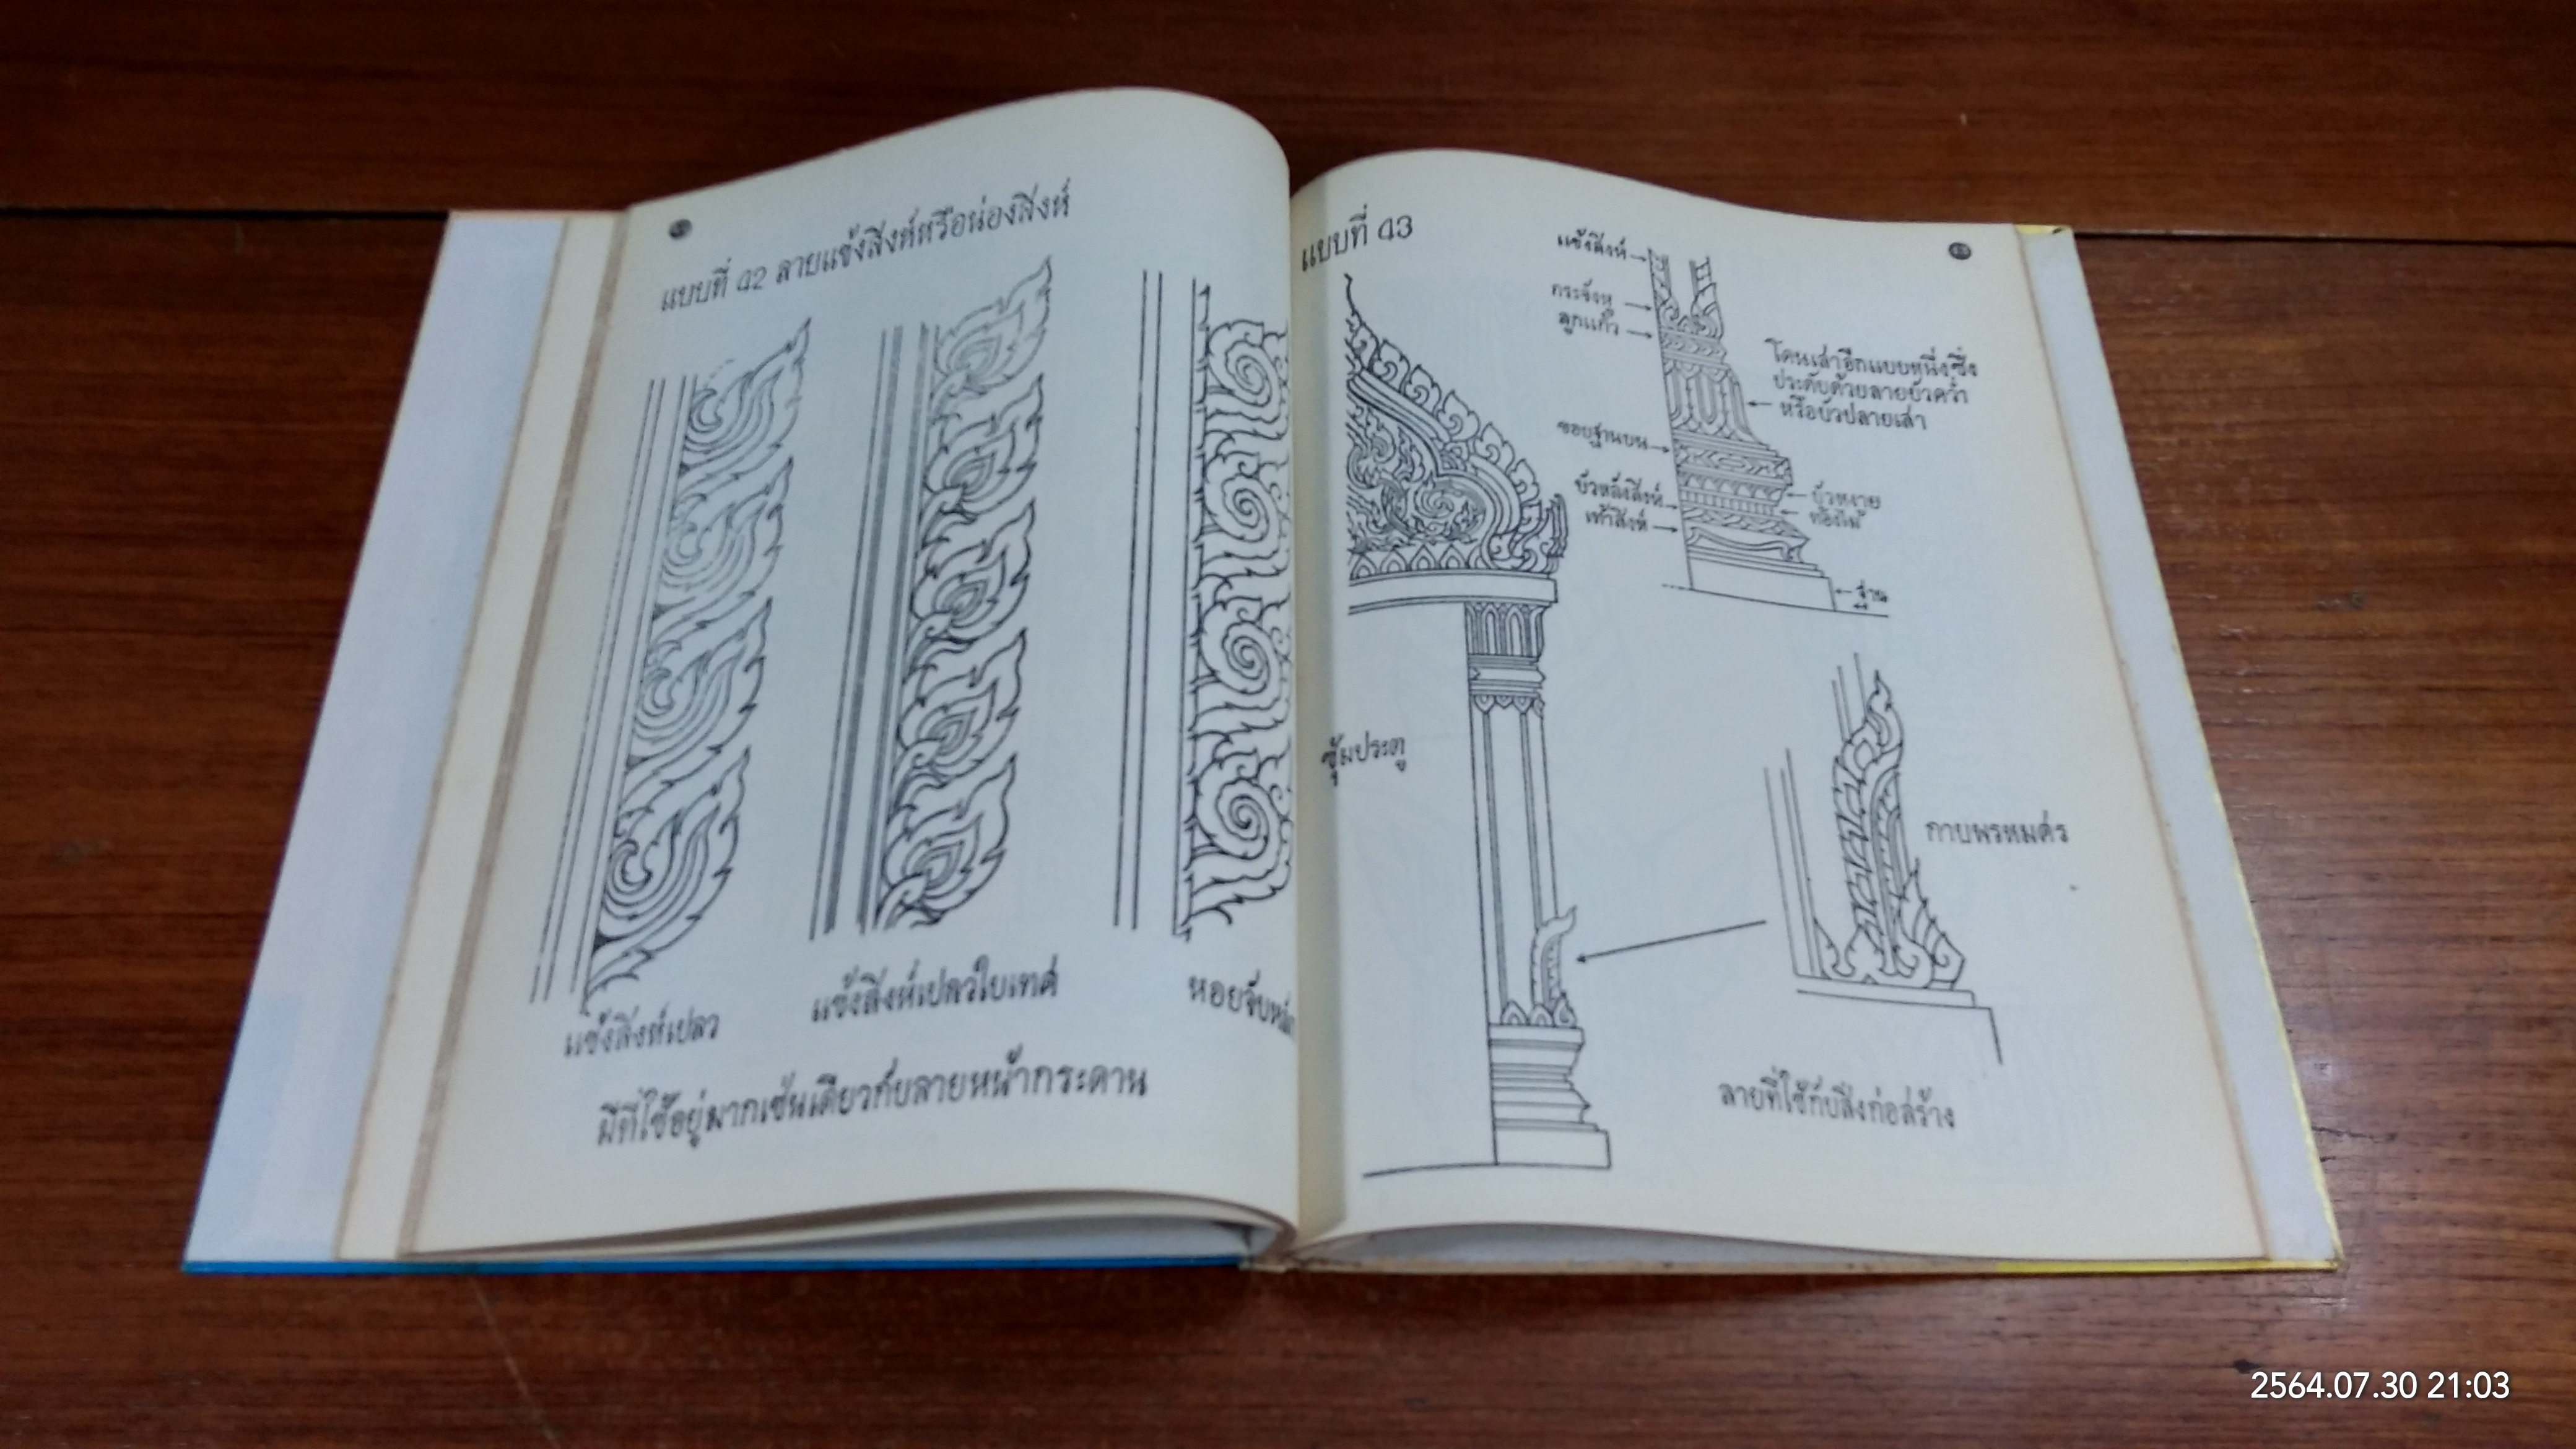 แบบที่ 42 ลายแข้งสิงห์หรือน่องสิงห์
แข้งสิงห์เปลว
แข้งสิงห์เปลวใบเทศ
หอยจับหลัก
มีที่ใช้อยู่มากเช่นเดียวกับลายหน้ากระดาน
แบบที่ 43
แข้งสิงห์
กระจัง
ลูกแก้ว
โคนเสาอีกแบบหนึ่งซึ่ง
ประดับด้วยลายบัวคว่ำ
หรือบัวปลายเสา
ขอบฐานบน
บัวหลังสิงห์
เท้าสิงห์
บัวหงาย
ท้องไม้
ฐาน
ซุ้มประตู
กาบพรหมศร
ลายที่ใช้กับสิ่งก่อสร้าง
2564.07.30 21:03